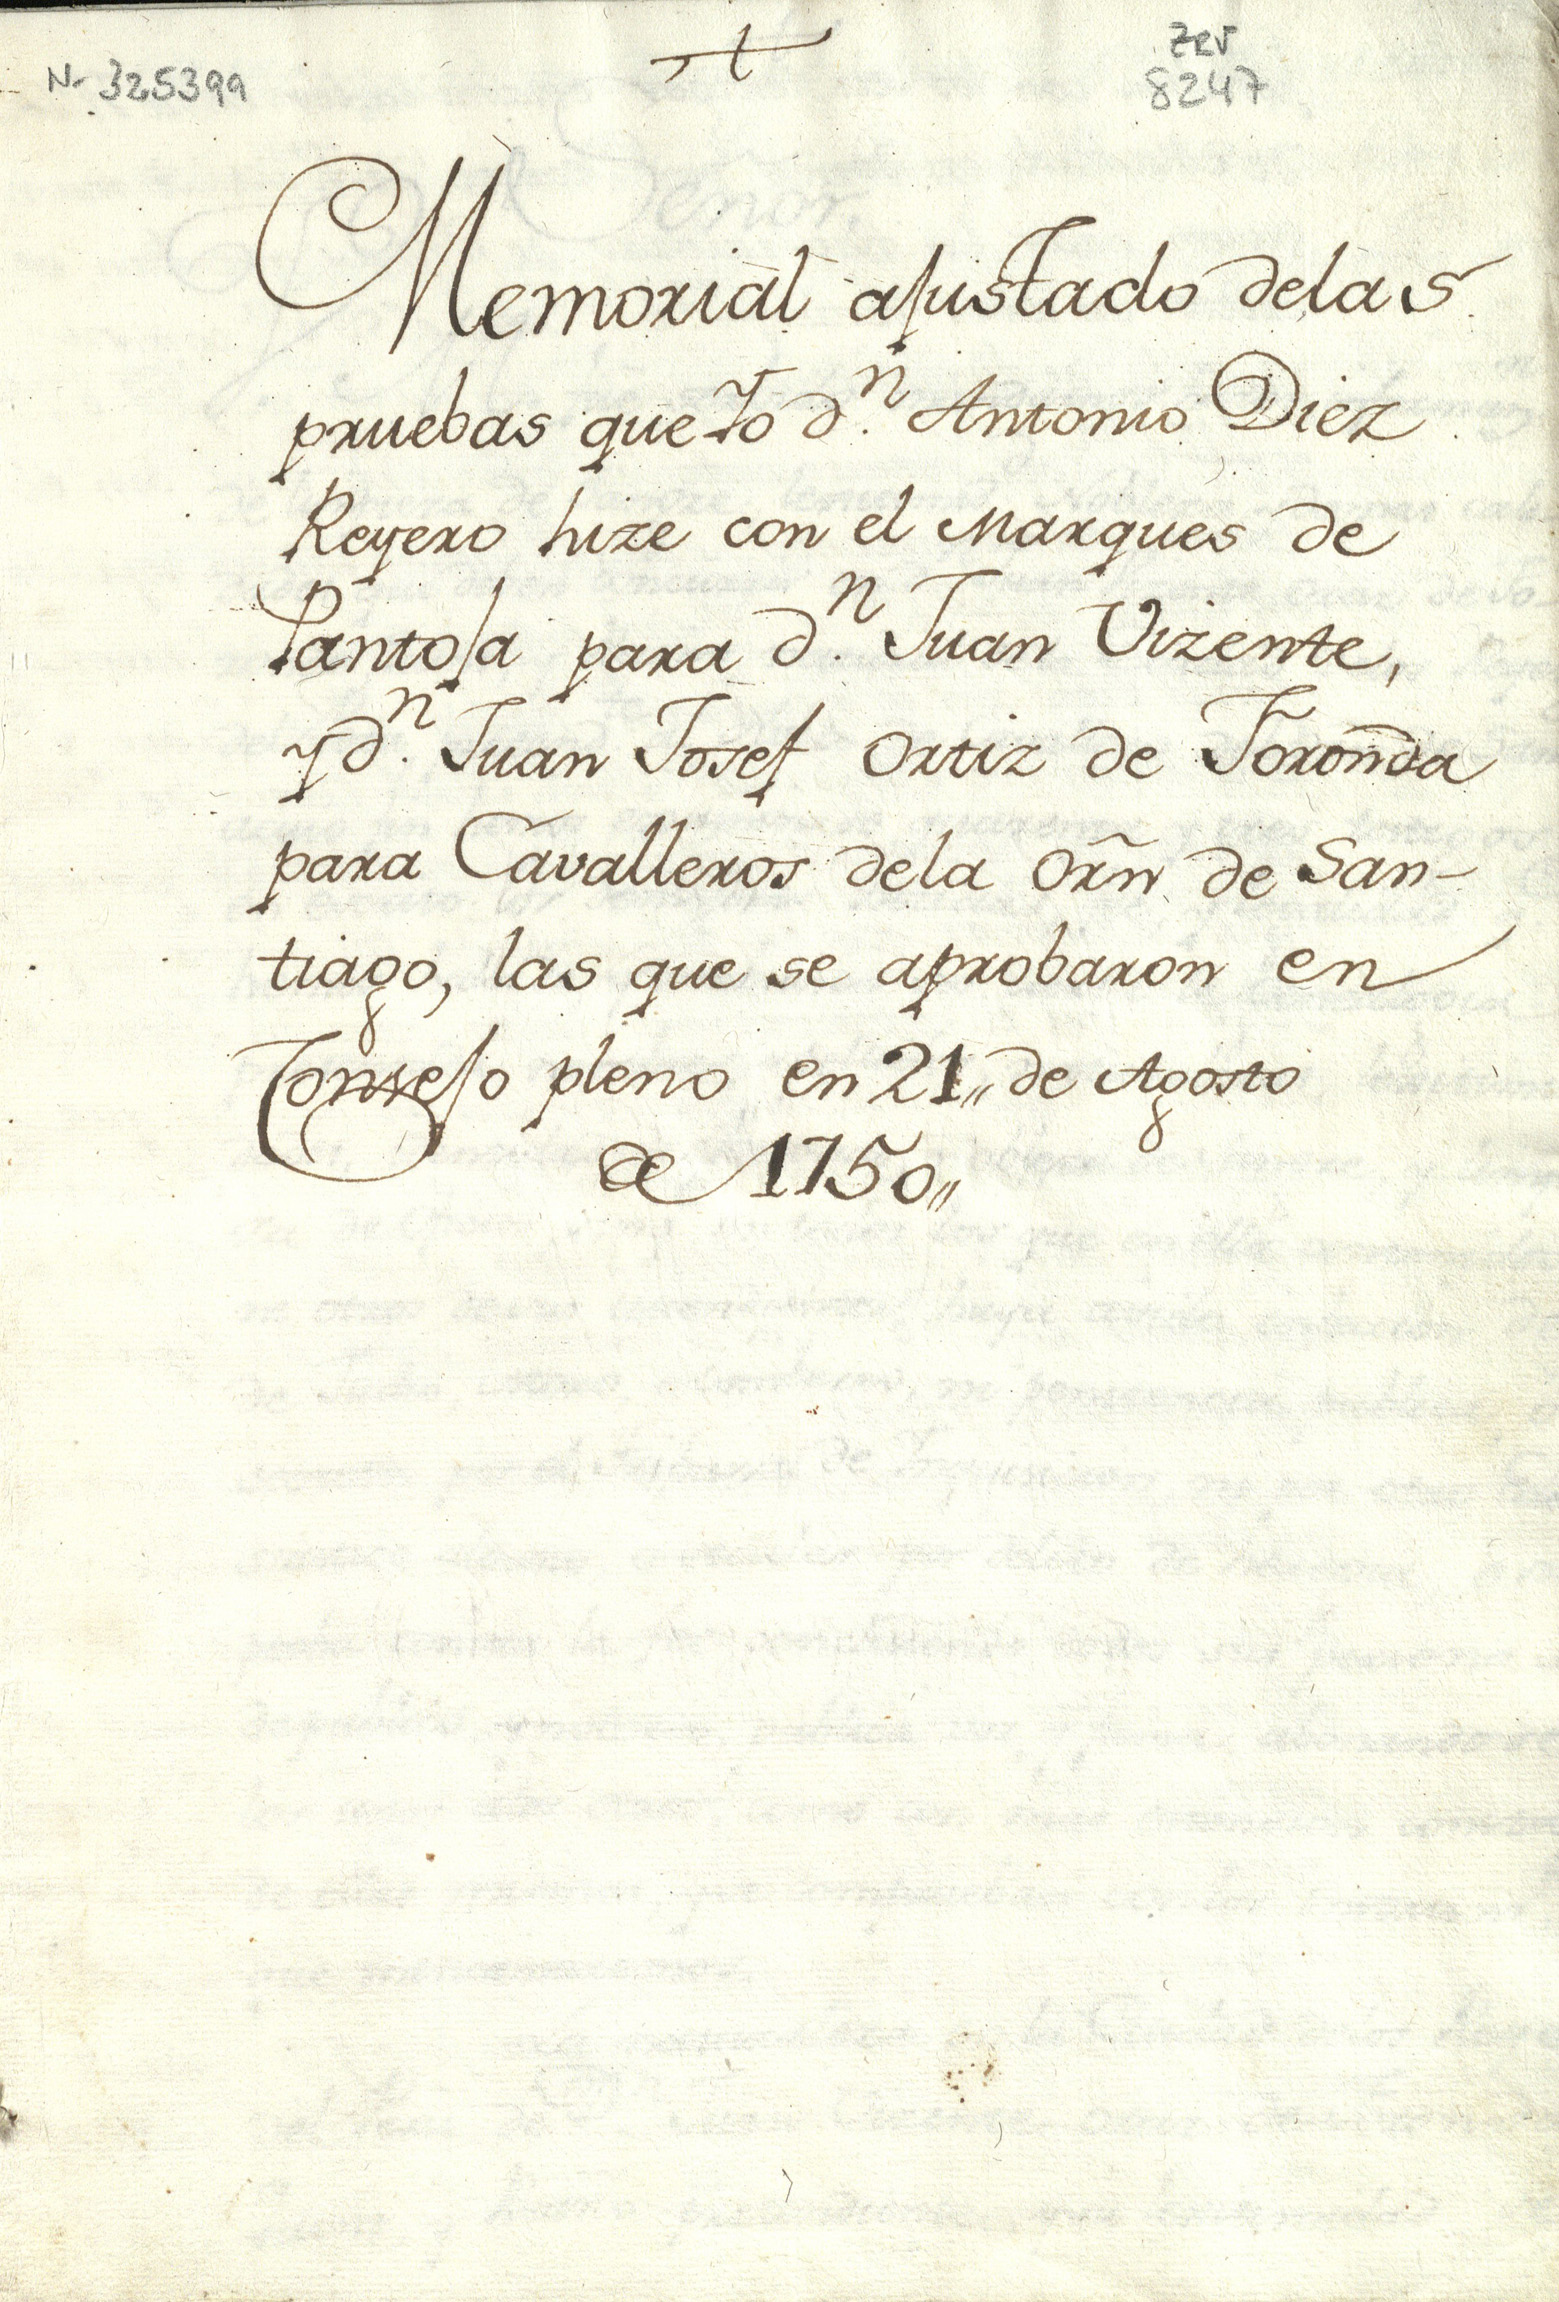 N- 325399
Zer
8247
Memorial ajustado delas
pruebas que Yo dⁿ. Antonio Diez
Reyero hize con el Marques de
Pantoja para dⁿ. Juan Vizente,
y dⁿ. Juan Josef Ortiz de Foronda
para Cavalleros dela Orñ de San-
tiago, las que se aprobaron en
Consejo pleno en 21,, de Agosto
de 1750,,